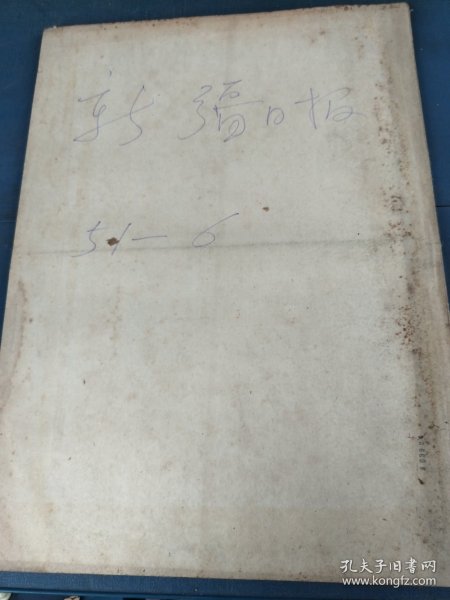 新疆日报
51-6
孔夫子旧书网
www.kongfz.com